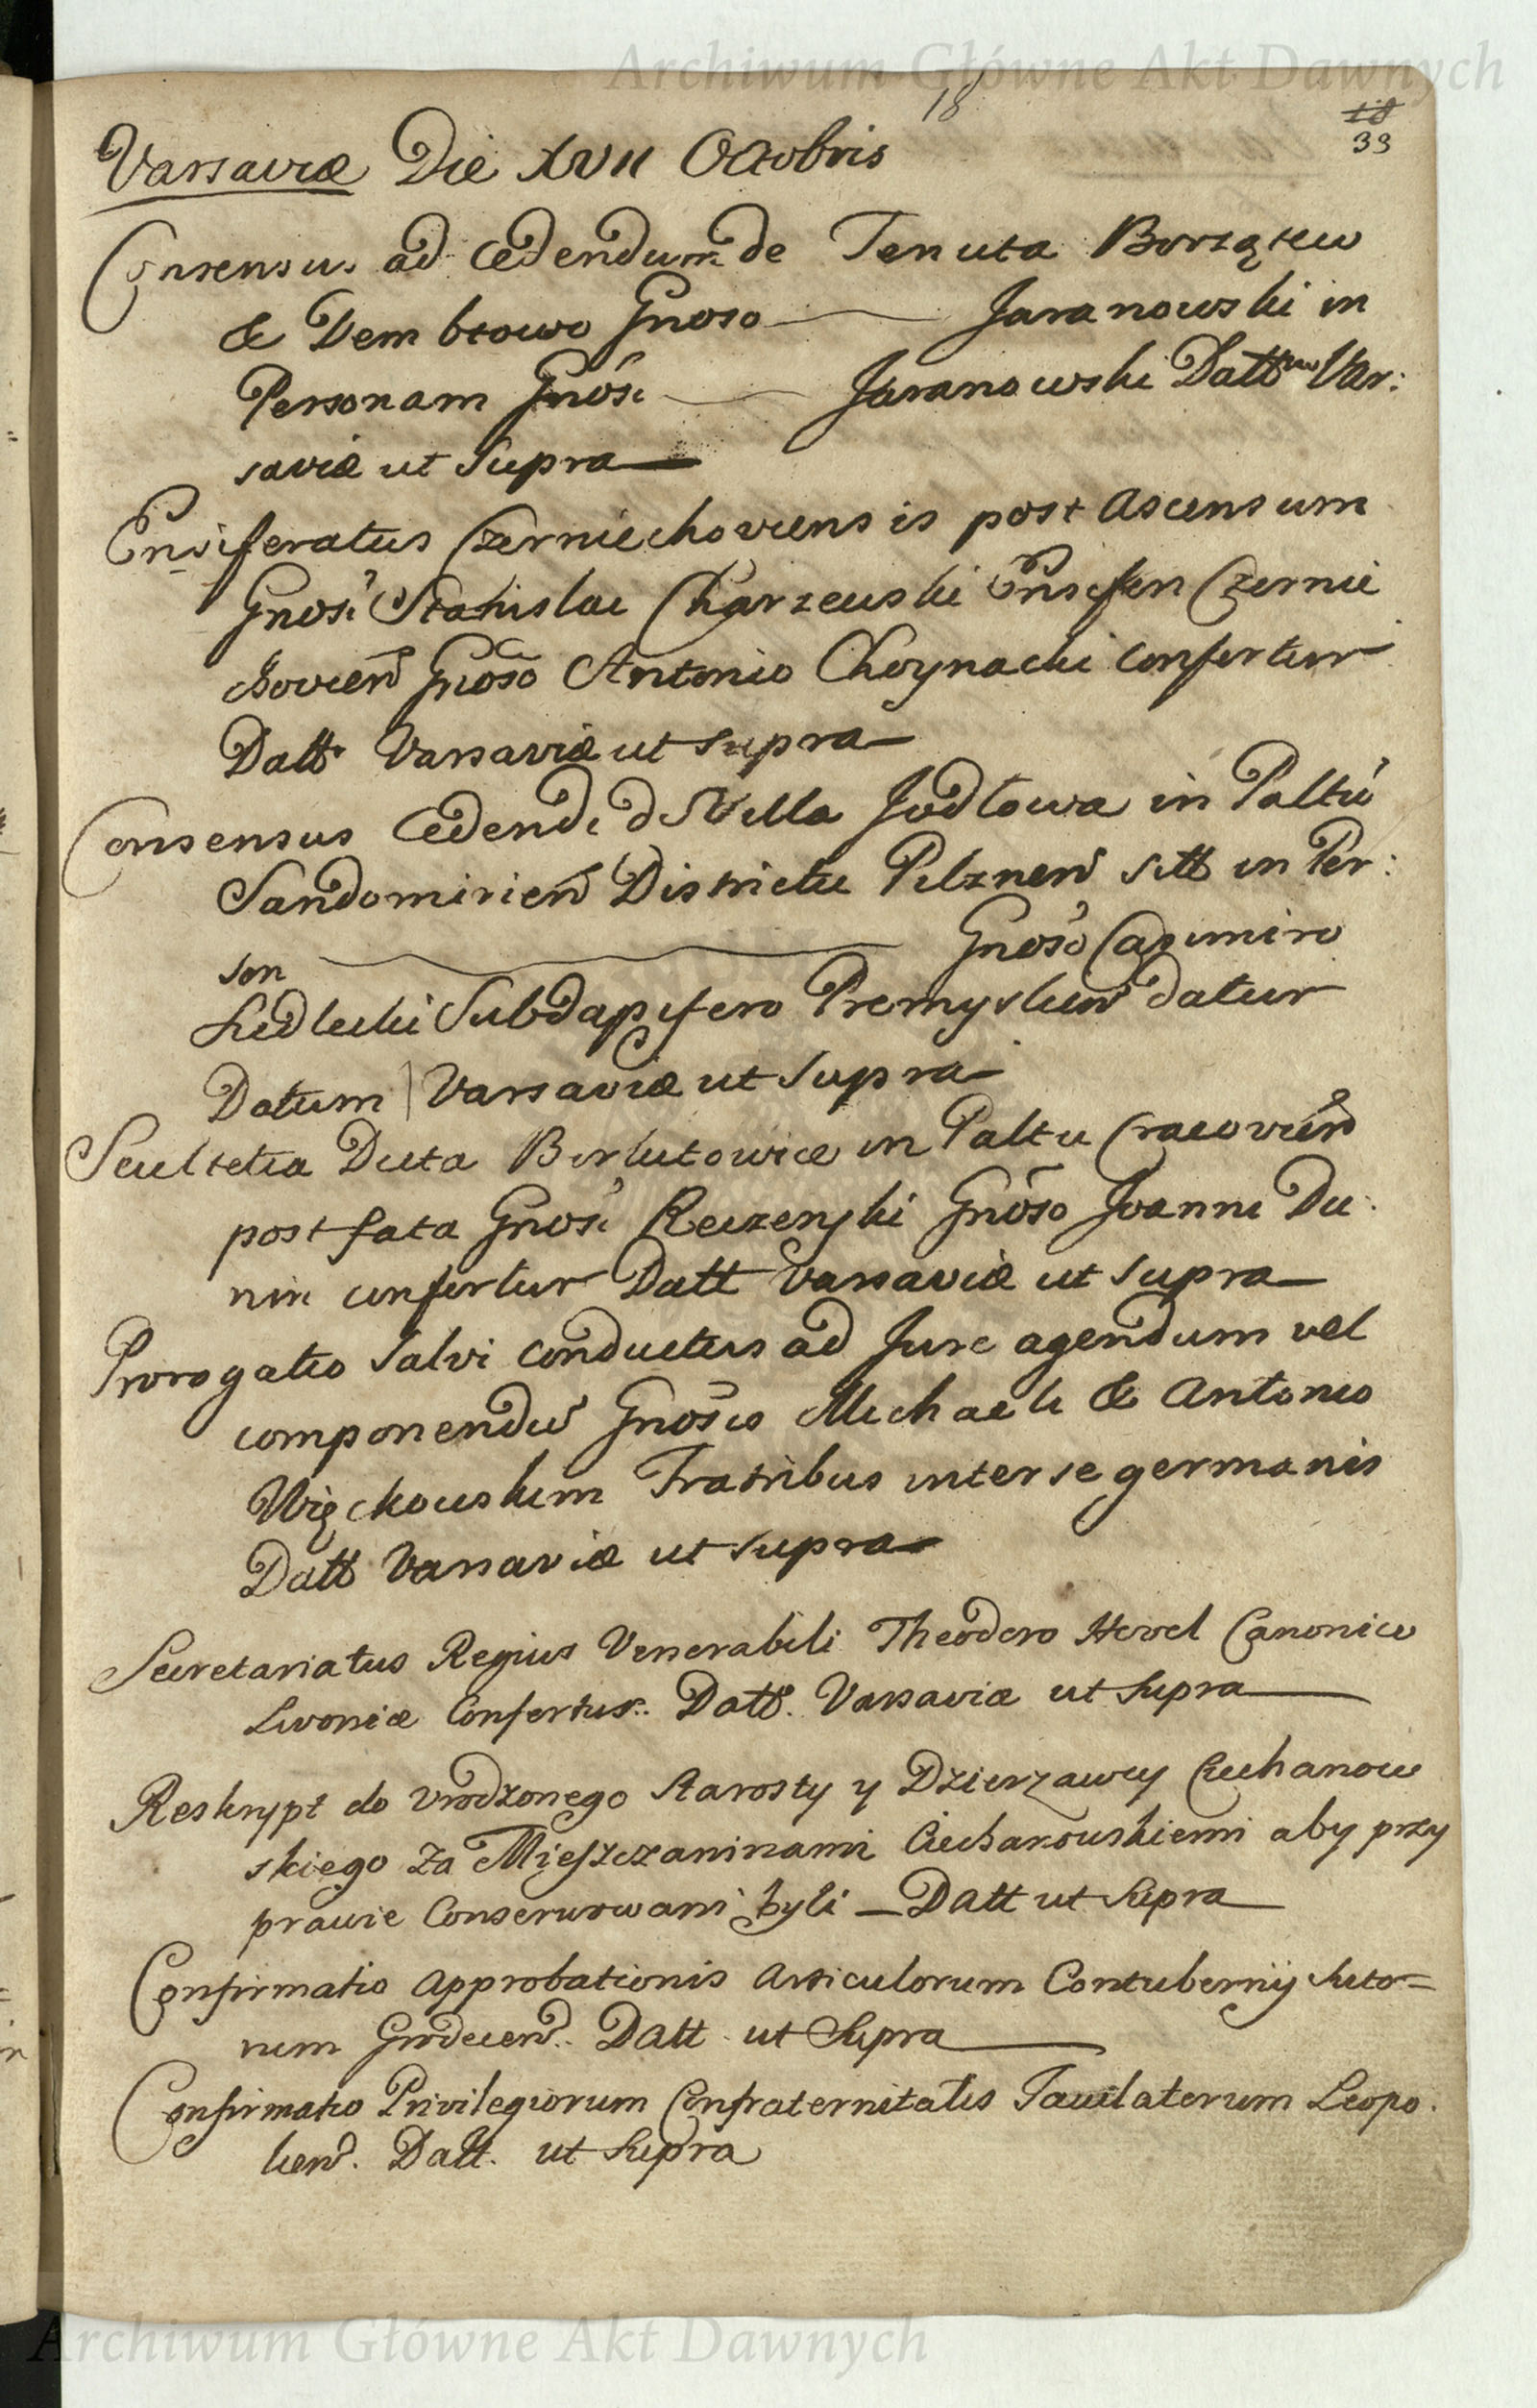 Archiwum Główne Akt Dawnych
18
18
33
Varsaviæ Die XVII Octobris
Consensus ad cedendum de Tenuta Borzątew
& Dembrowo Gnoso Jaranowski in
Personam Gnosi Jaranowski Datt Var:
saviæ ut Supra
Ensiferatus Czerniechoviensis post Ascensum
Gnosi Stanislai Charzewski Ensiferi Czernie
chovień Gnoso Antonio Choynacki confertur
Datt Varsaviæ ut supra
Consensus cedendi de Villa Jodłowa in Pałtu
Sandomirień Districtu Pilzneń sitt in Per:
son Gnoso Casimiro
Siedlecki Subdapifero Premyslień datur
Datum Varsaviæ ut Supra
Scultetia Dicta in Paltu Cracovień
post fata Gnosi Gnoso Joanni Du:
nin confertur Datt Varsaviæ ut supra
Prorogatio Salvi conductus ad Jure agendum vel
componendū Gnosis Michaeli & Antonio
Więckowskim Fratribus inter se germanis
Datt Varsaviæ ut supra
Secretariatus Regius Venerabili Theodoro Hevel Canonico
Livoniæ Confertur. Datt. Varsaviæ ut Supra
Reskrypt do Vrodzonego Starosty y Dzierzawcy Ciechanow
skiego za Mięszczaninami Ciechanowskiemi aby przy
prawie Conserwowani byli Datt ut Supra
Confirmatio Approbationis Articulorum Contubernij Suto=
rum Grodeceń. Datt ut Supra
Confirmatio Privilegiorum Confraternitatis Leopo.
lień. Datt. ut Supra
Archiwum Główne Akt Dawnych